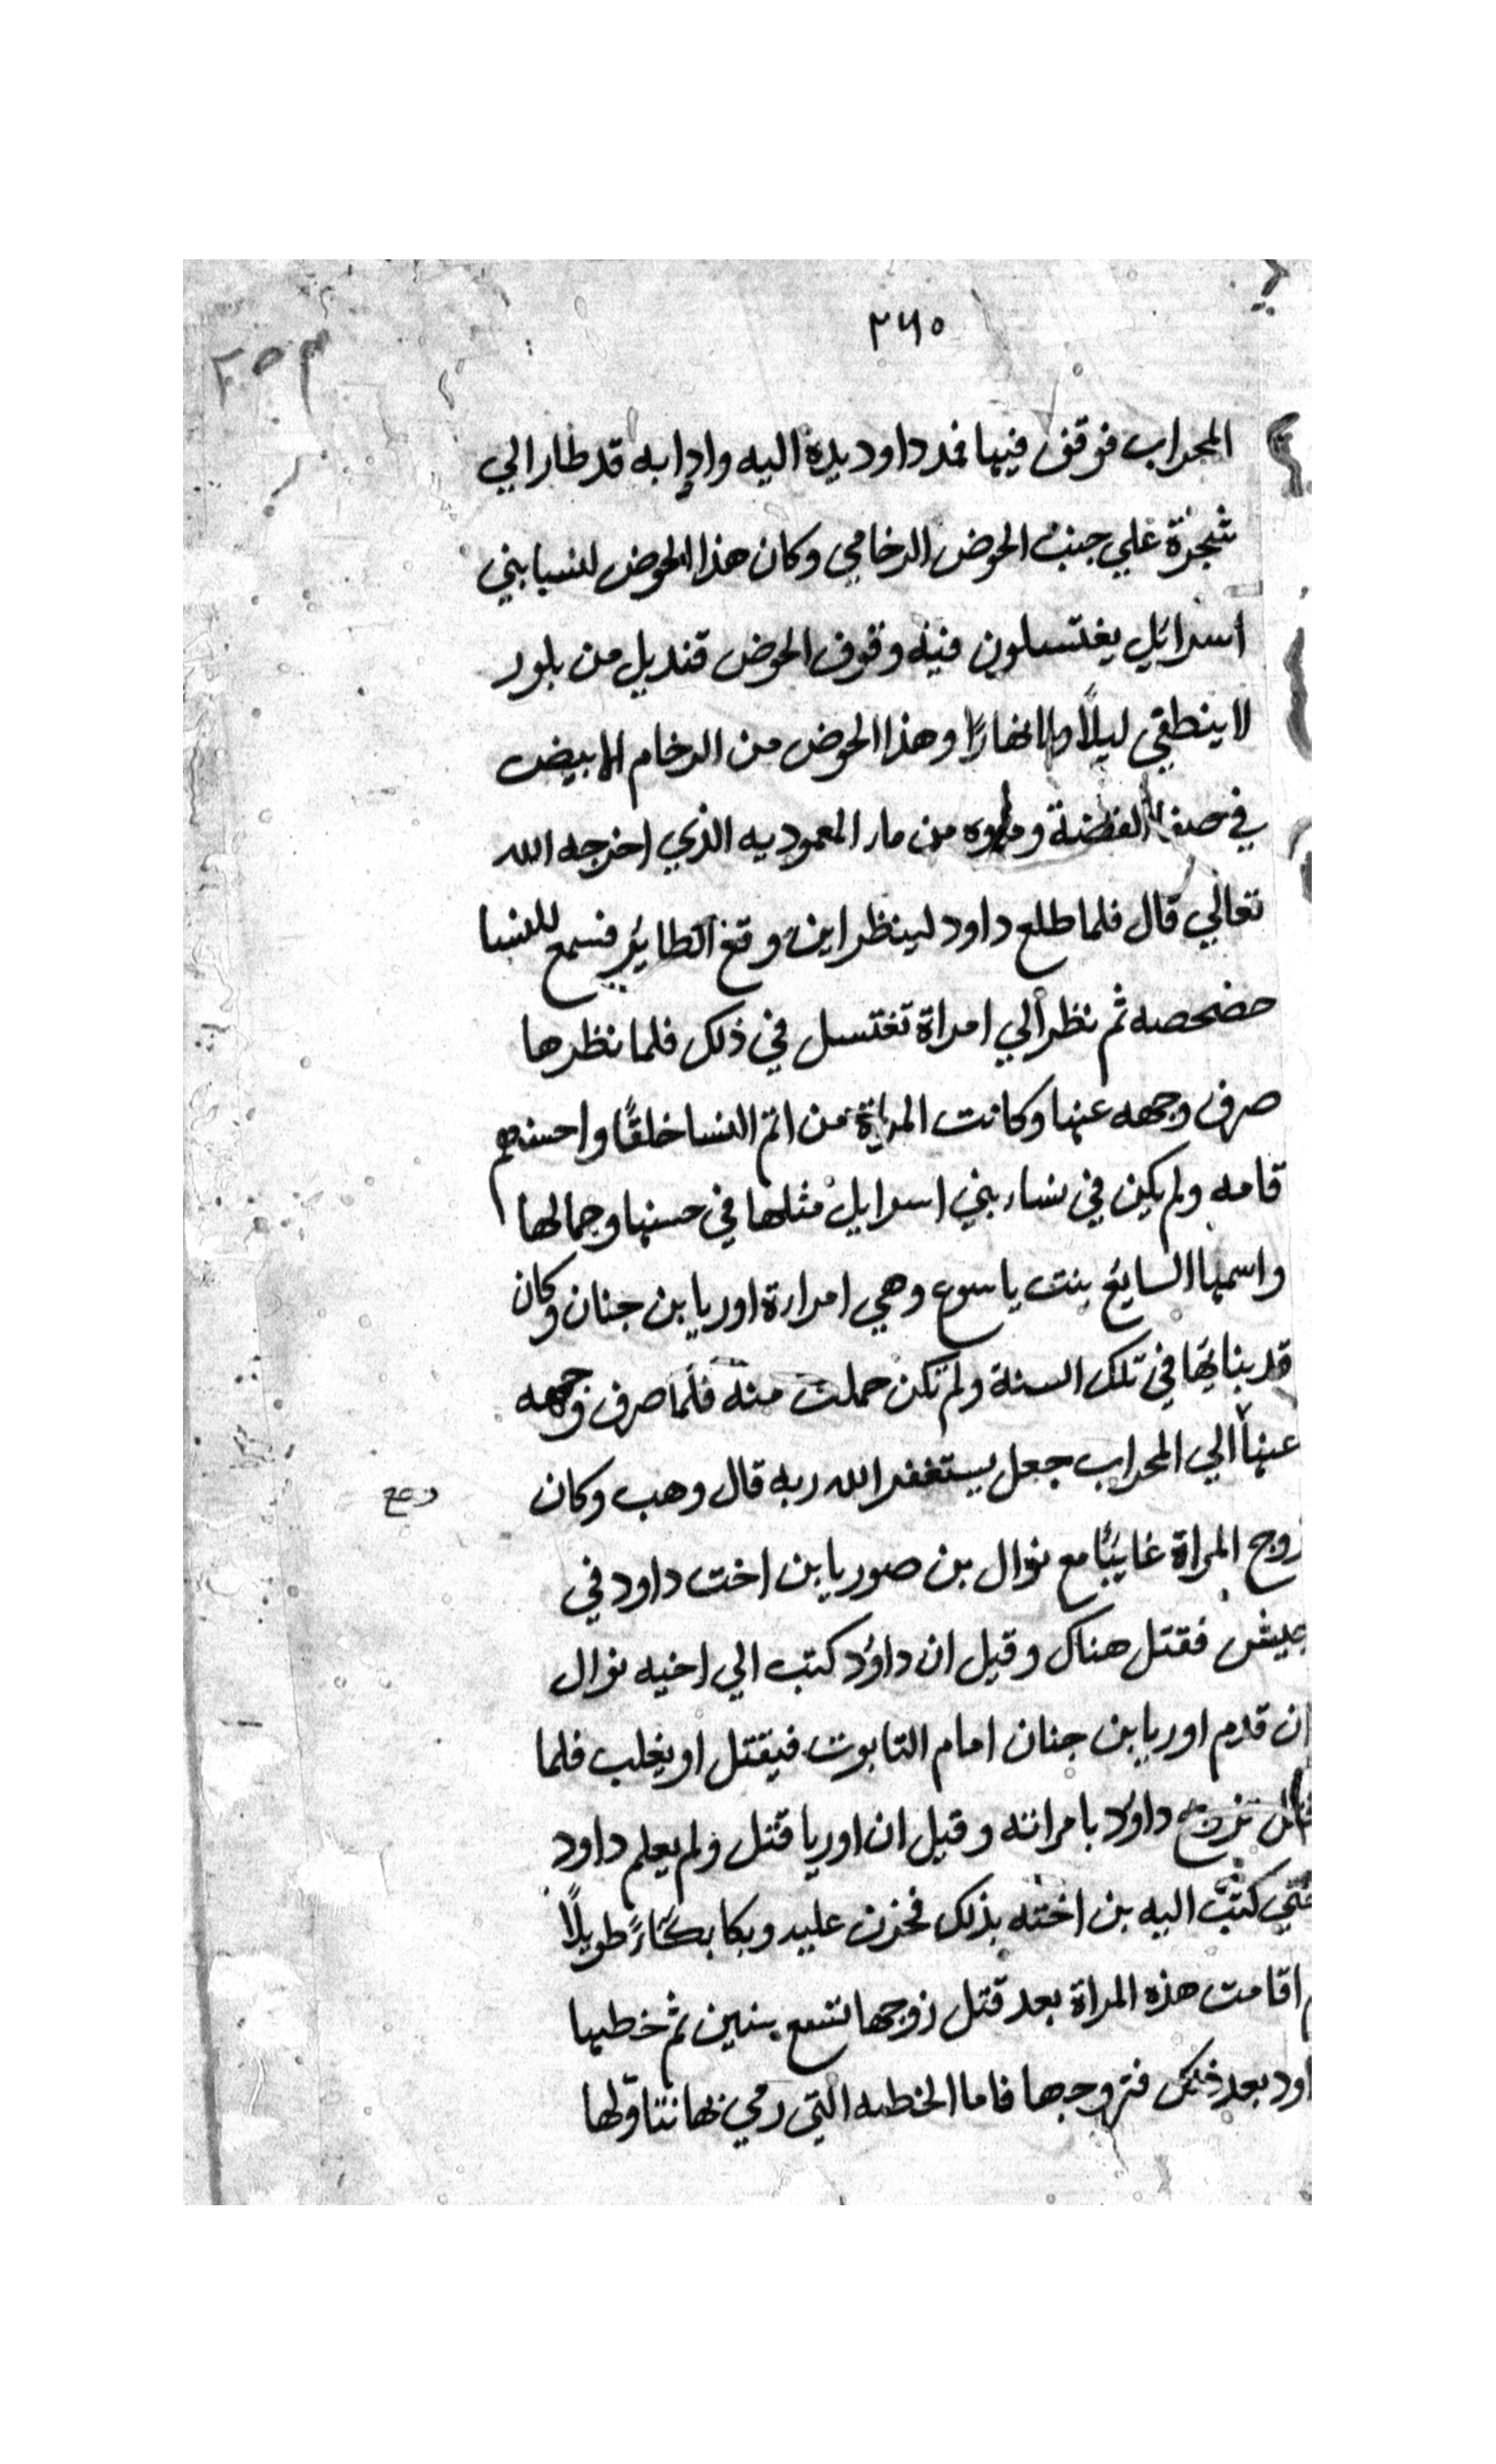 ٢٦٥
٢٥٣
المحراب فوقف فيها فمد داود يده اليه واذا به قد طار الي
شجرة علي جنب الحوض الرخامي وكان هذا الحوض للنسا بني
اسرائيل يغتسلون فيه وفوق الحوض قنديل من بلور
لا ينطفي ليلًا ولا نهارًا وهذا الحوض من الرخام الابيض
في صفا الفضة وماوه من مار المعموديه الذي اخرجه الله
تعالي قال فلما طلع داود لينظر اين وقع الطاير فسمع للنسا
حضحصه ثم نظر الي امراة تغتسل في ذلك فلما نظرها
صرف وجهه عنها وكانت المراة من اتم النسا خلقًا واحسنهم
قامه ولم يكن في نساء بني اسرايل مثلها في حسنها وجمالها
واسمها السايغ بنت ياسوع وهي امراة اوريا بن جنان وكان
قد بنا بها في تلك السنة ولم تكن حملت منه فلما صرف وجهه
عنها الي المحراب جعل يستغفر الله ربه قال وهب وكان
زوج المراة غايبًا مع نوال بن صوريا بن اخت داود في
جيش فقتل هناك وقيل ان داود كتب الي اخيه نوال
ان قدم اوريا بن جنان امام التابوت فيقتل او يغلب فلما
تزوج داود بامراته وقيل ان اوريا قتل ولم يعلم داود
حتي كتب اليه بن اخته بذلك فحزن عليه وبكا بكاءً طويلًا
اقامت هذه المراة بعد قتل زوجها تسع سنين ثم خطبها
اود بعد ذلك فتزوجها فاما الخطيه التي رمي بها نتاولها